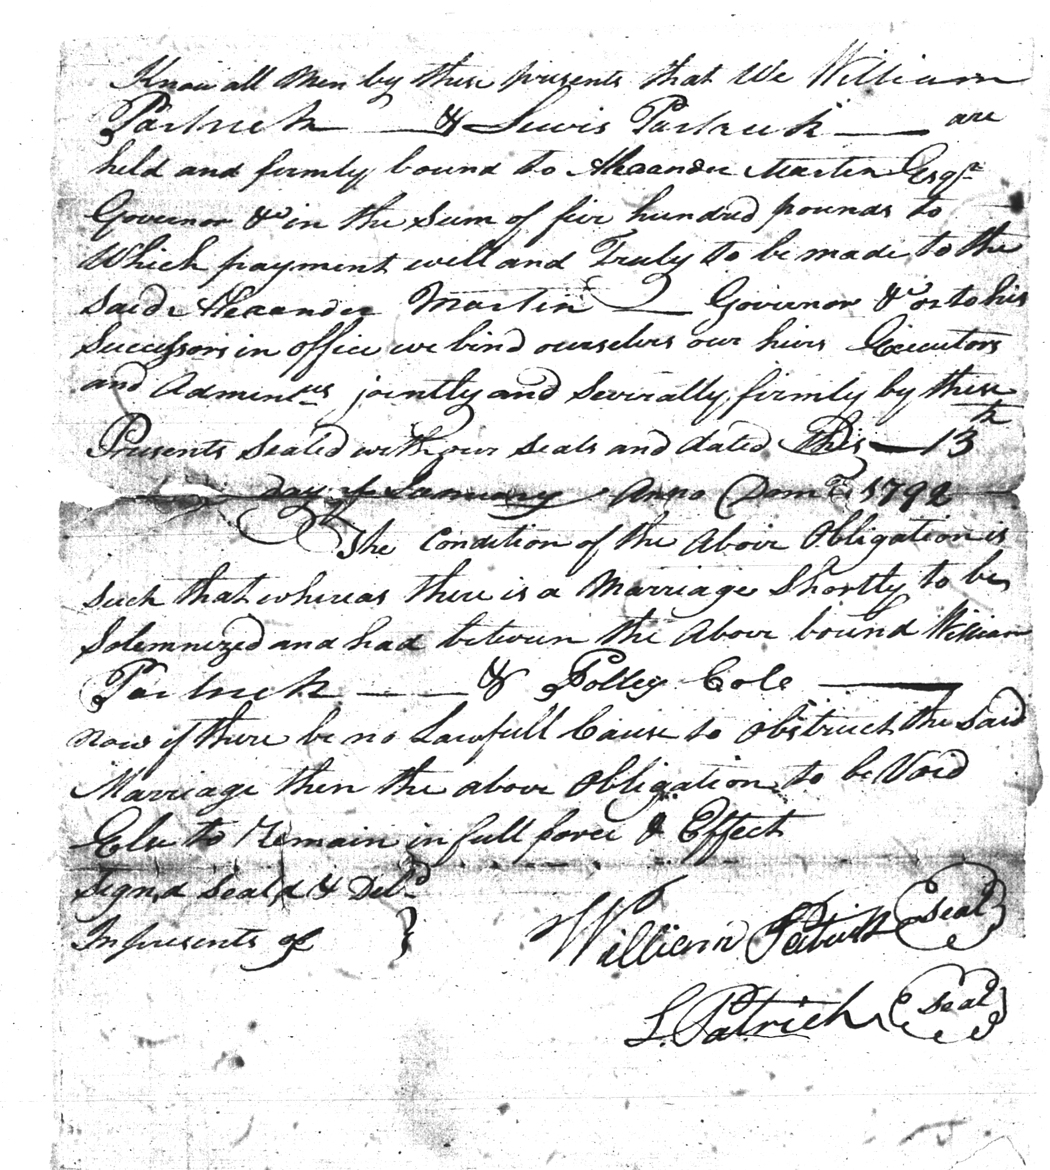 Know all Men by these presents that We William
Partrick & Lewis Partrick are
held and firmly bound to Alexander Martin Esqr
Governor &c in the Sum of five hundred pounds to
Which payment well and Truly to be made to the
Said Alexander Martin Governor &c or to his
Successors in office we bind ourselves our heirs Executors
and Adminrs jointly and Severally firmly by these
Presents Sealed with our Seals and dated This 13th
day of January Anno Dom 1792
The Condition of the Above Obligation is
Such that whereas there is a Marriage Shortly to be
Solemnized and had between the Above bound William
Partrick & Polley Cole
now if there be no Lawfull Cause to Obstruct the Said
Marriage then the above Obligation to be Void
Else to Remain in full force & Effect
Signd Seald & Deld
In presents of
William Patrick Seal
L. Patrick Seal